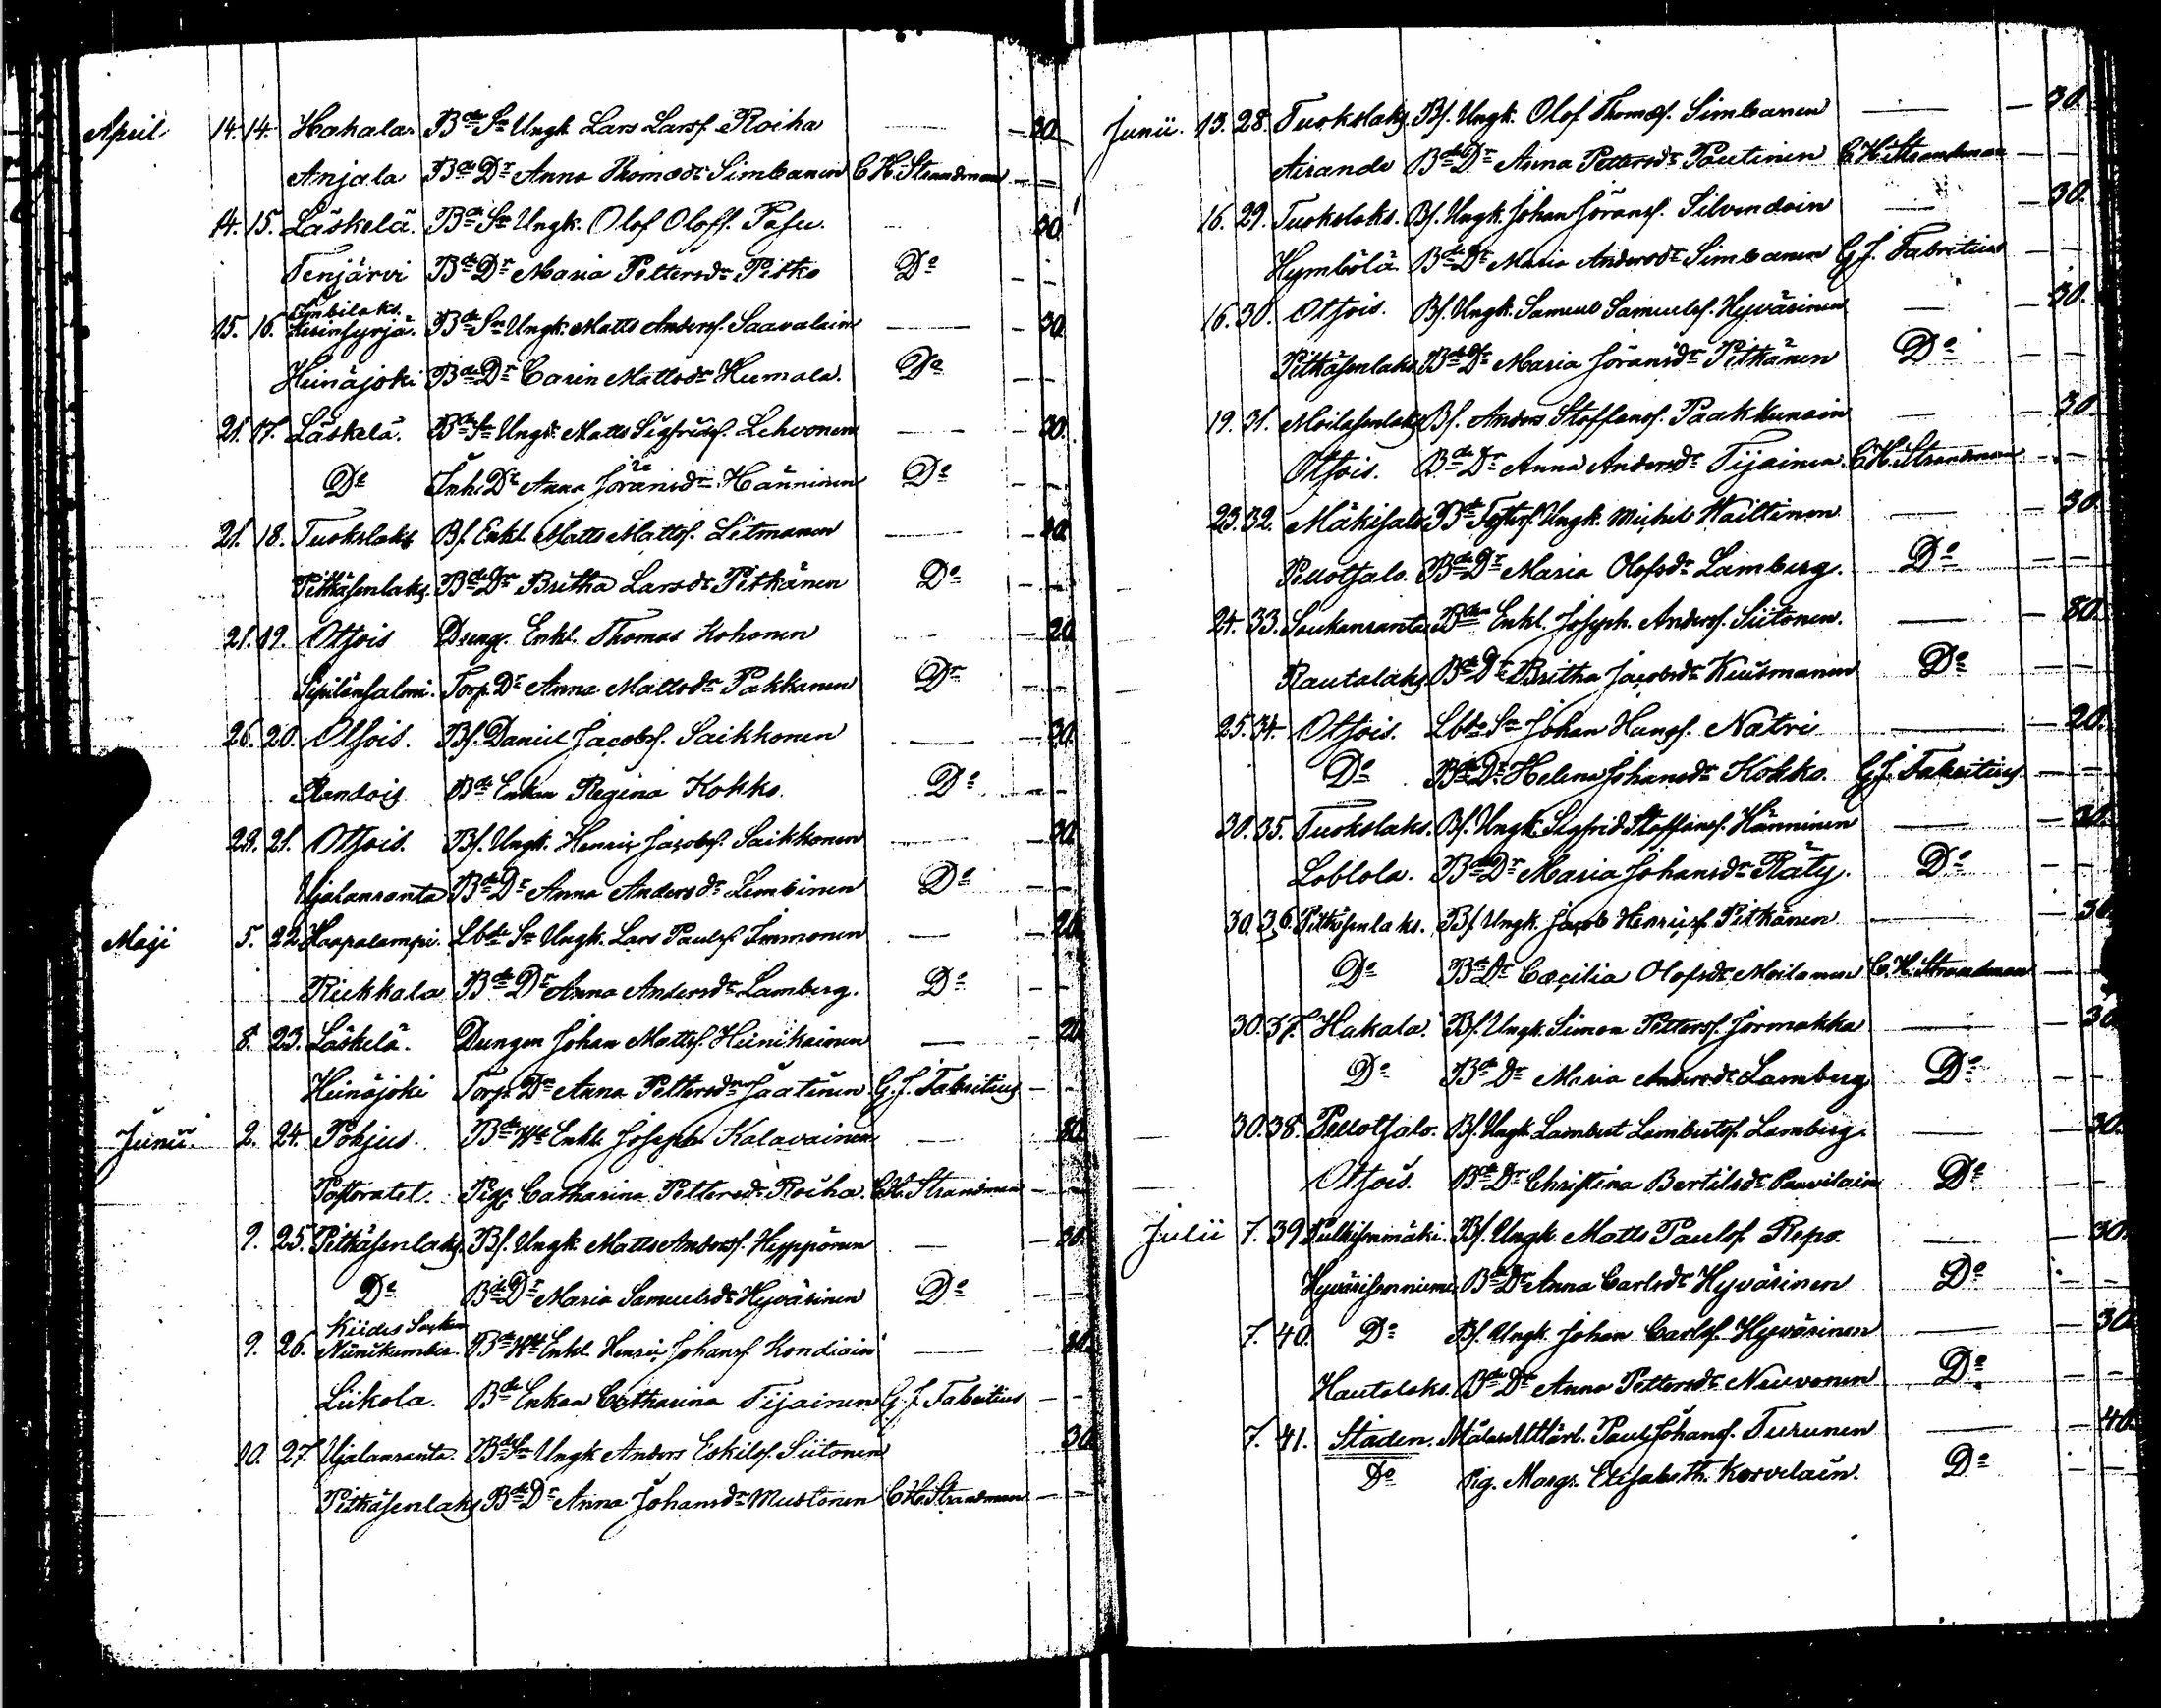 April 14. 14. Hakala B.de S.n Ungk. Lars Larsf. Roiha — — 30.
Anjala B.de D.r Anna Thomæd.r Simbanen C H. Strandman — —
14. 15. Läskelä. B.de S.n Ungk. Olof Oloff. Pafu. — 30.
Tenjärvi B.de D.r Maria Pettersd.r Pitko D.o — —
Imbilaks.
15. 16. B.de S.n Ungk. Matts Andersf. Saavalain — — 30.
Heinäjoki B.de D.r Carin Mattsd.r Humala. D.o — —
21. 17. Läskelä. B.de S.n Ungk. Matts Sigfridsf. Lehvonen — — 30.
D.o Inh. D.r Anna Jöransd.r Hänninen D.o — —
21. 18. Tuokslaks Bf. Enkl. Matts Mattsf. Litmanen —
Pitkäsenlaks. B.de D.r Britha Larsd.r Pitkänen D.o — —
21. 19. Otsois Dreng. Enkl. Thomas Kohonen — — 20.
Sipilänsalmi. Torp. D.r Anna Mattsd.r Pakkanen D.r — —
26. 20. Otsois. Bf. Daniel Jacobsf. Saikkonen — — 30.
Randois B.de Enkan Regina Kokko. D.o — —
29. 21. Otsois. Bf. Ungk. Henric Jacobsf. Saikkonen — — 30.
Ujalanranta B.de D.r Anna Andersd.r Lembinen D.o — —
Maji 5. 22. Haapalampi. Lbde S.n Ungk. Lars Paulsf. Immonen — — 20.
Riekkala B.de D.r Anna Andersd.r Lamberg. D.o — —
8. 23. Läskelä. Dungen Johan Mattsf. Heinikainen — — 20.
Heinäjoki Torp. D.r Anna Pettersd.r Jäätinen G. J. Fabritius — —
Junii. 2. 24. Pohjus. B.de Enkl. Joseph Kalavainen —
Pastoratet. Pig. Catharina Pettersd.r Roiha. C H. Strandman — —
9. 25. Pitkäsenlaks. Bf. Ungk. Matts Andersf. Hyppönen — — 30.
D.o B.de D.r Maria Samuelsd.r Hyväsinen D.o — —
Kiides Socken
9. 26. Niinikumbu. B.de Enkl. Henric Johansf. Kondiain —
Liikola. B.de Enkan Catharina Tijainen G. J. Fabritius — —
10. 27. Ujalanranta. B.de S.n Ungk. Anders Eskilsf. Siitonen 30.
Pitkäsenlaks B.de D.r Anna Johansd.r Mustonen C H Strandman — —
Junii. 13. 28. Tuokslaks. Bf. Ungk. Olof Thomæf. Simbanen — — 30.
Airanda B.de D.r Anna Pettersd.r Pautinen C H Strandman — —
16. 29. Tuokslaks. Bf. Ungk. Johan Jöransf. Silvendoin — — 30.
Hymbölä. B.de D.r Maria Andersd.r Simbanen G J. Fabritius — —
16. 30. Otsois. Bf. Ungk. Samuel Samuelsf. Hyväsinen — — 30.
Pitkäsenlaks. B.de D.r Maria Jöransd.r Pitkänen D.o — —
19. 31. Moilasenlaks Bf. Anders Staffansf. Paakkunain — — 30
Otsois. B.de D.r Anna Andersd.r Tijainen. C H. Strandman — —
23. 32. Mäkisalo Ungk. Michel Wailtinen — — 30
Pellotsalo. B.de D.r Maria Olofsd.r Lamberg. D.o — —
24. 33. Saukanranta Enkl. Joseph Andersf. Siitonen. — — 80.
Rautalaks B.de D.r Britha Jacobsd.r Kuismanen D.o — —
25. 34. Otsois. Lbde S.n Johan Hansf. Natri — — 20.
D.o B.de D.r Helena Johansd.r Kokko. G J. Fabritius — —
30. 35. Tuokslaks. Bf. Ungk. Sigfrid Staffansf. Hänninen — — 30.
Loblola. B.de D.r Maria Johansd.r Räty. D.o — —
30. 36. Pitkäsenlaks. Bf. Ungk. Jacob Henricsf. Pitkänen — — 30
D.o B.de D.r Cæcilia Olofsd.r Moilanen C. H. Strandman — —
30. 37. Hakala. Bf. Ungk. Simon Pettersf. Jormakka — — 30
D.o B.de D.r Maria Andersd.r Lamberg D.o — —
30. 38. Pellotsalo. Bf. Ungk. Lambert Lambertsf. Lamberg. — — 30.
Otsois. B.de D.r Christina Bertilsd.r Paavilain D.o — —
Julii 7. 39. Pulkisenmäki. Bf. Ungk. Matts Paulsf. Repo. — — 30.
Hyväsisenniemi. B.de D.r Anna Carlsd.r Hyväsinen D.o — —
7. 40. D.o Bf. Ungk. Johan Carlsf. Hyväsinen — — 30.
Hautalaks. B.de D.r Anna Pettersd.r Neuvonen D.o — —
7. 41. Staden. Paul Johansf. Turunen — — 40.
D.o Pig. Margr. Elisabeth Korvelain. D.o — —